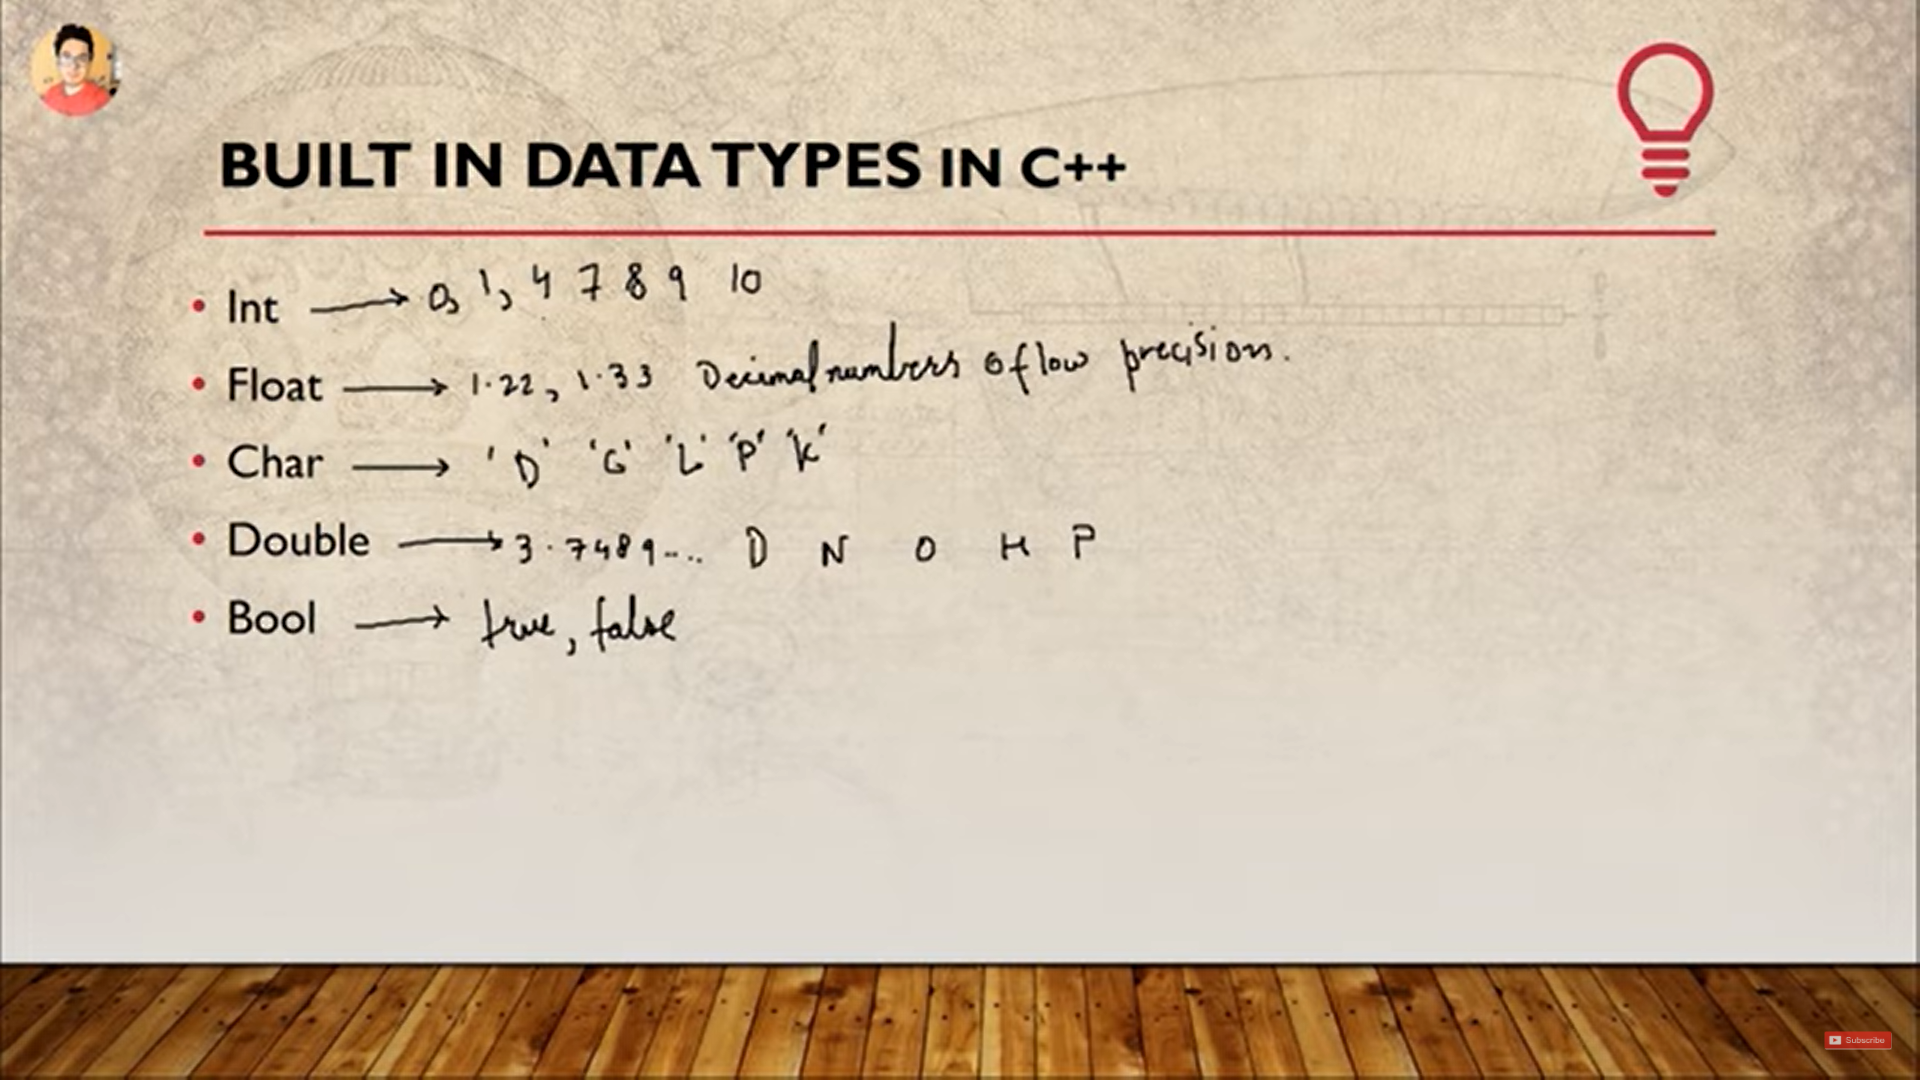 BUILT IN DATA TYPES IN C++
• Int → 0, 1, 4 7 8 9 10
• Float → 1.22, 1.33 Decimal numbers of low precision.
• Char → 'D' 'G' 'L' 'P' 'K'
• Double → 3.7489.... D N O H P
• Bool → true, false
Subscribe